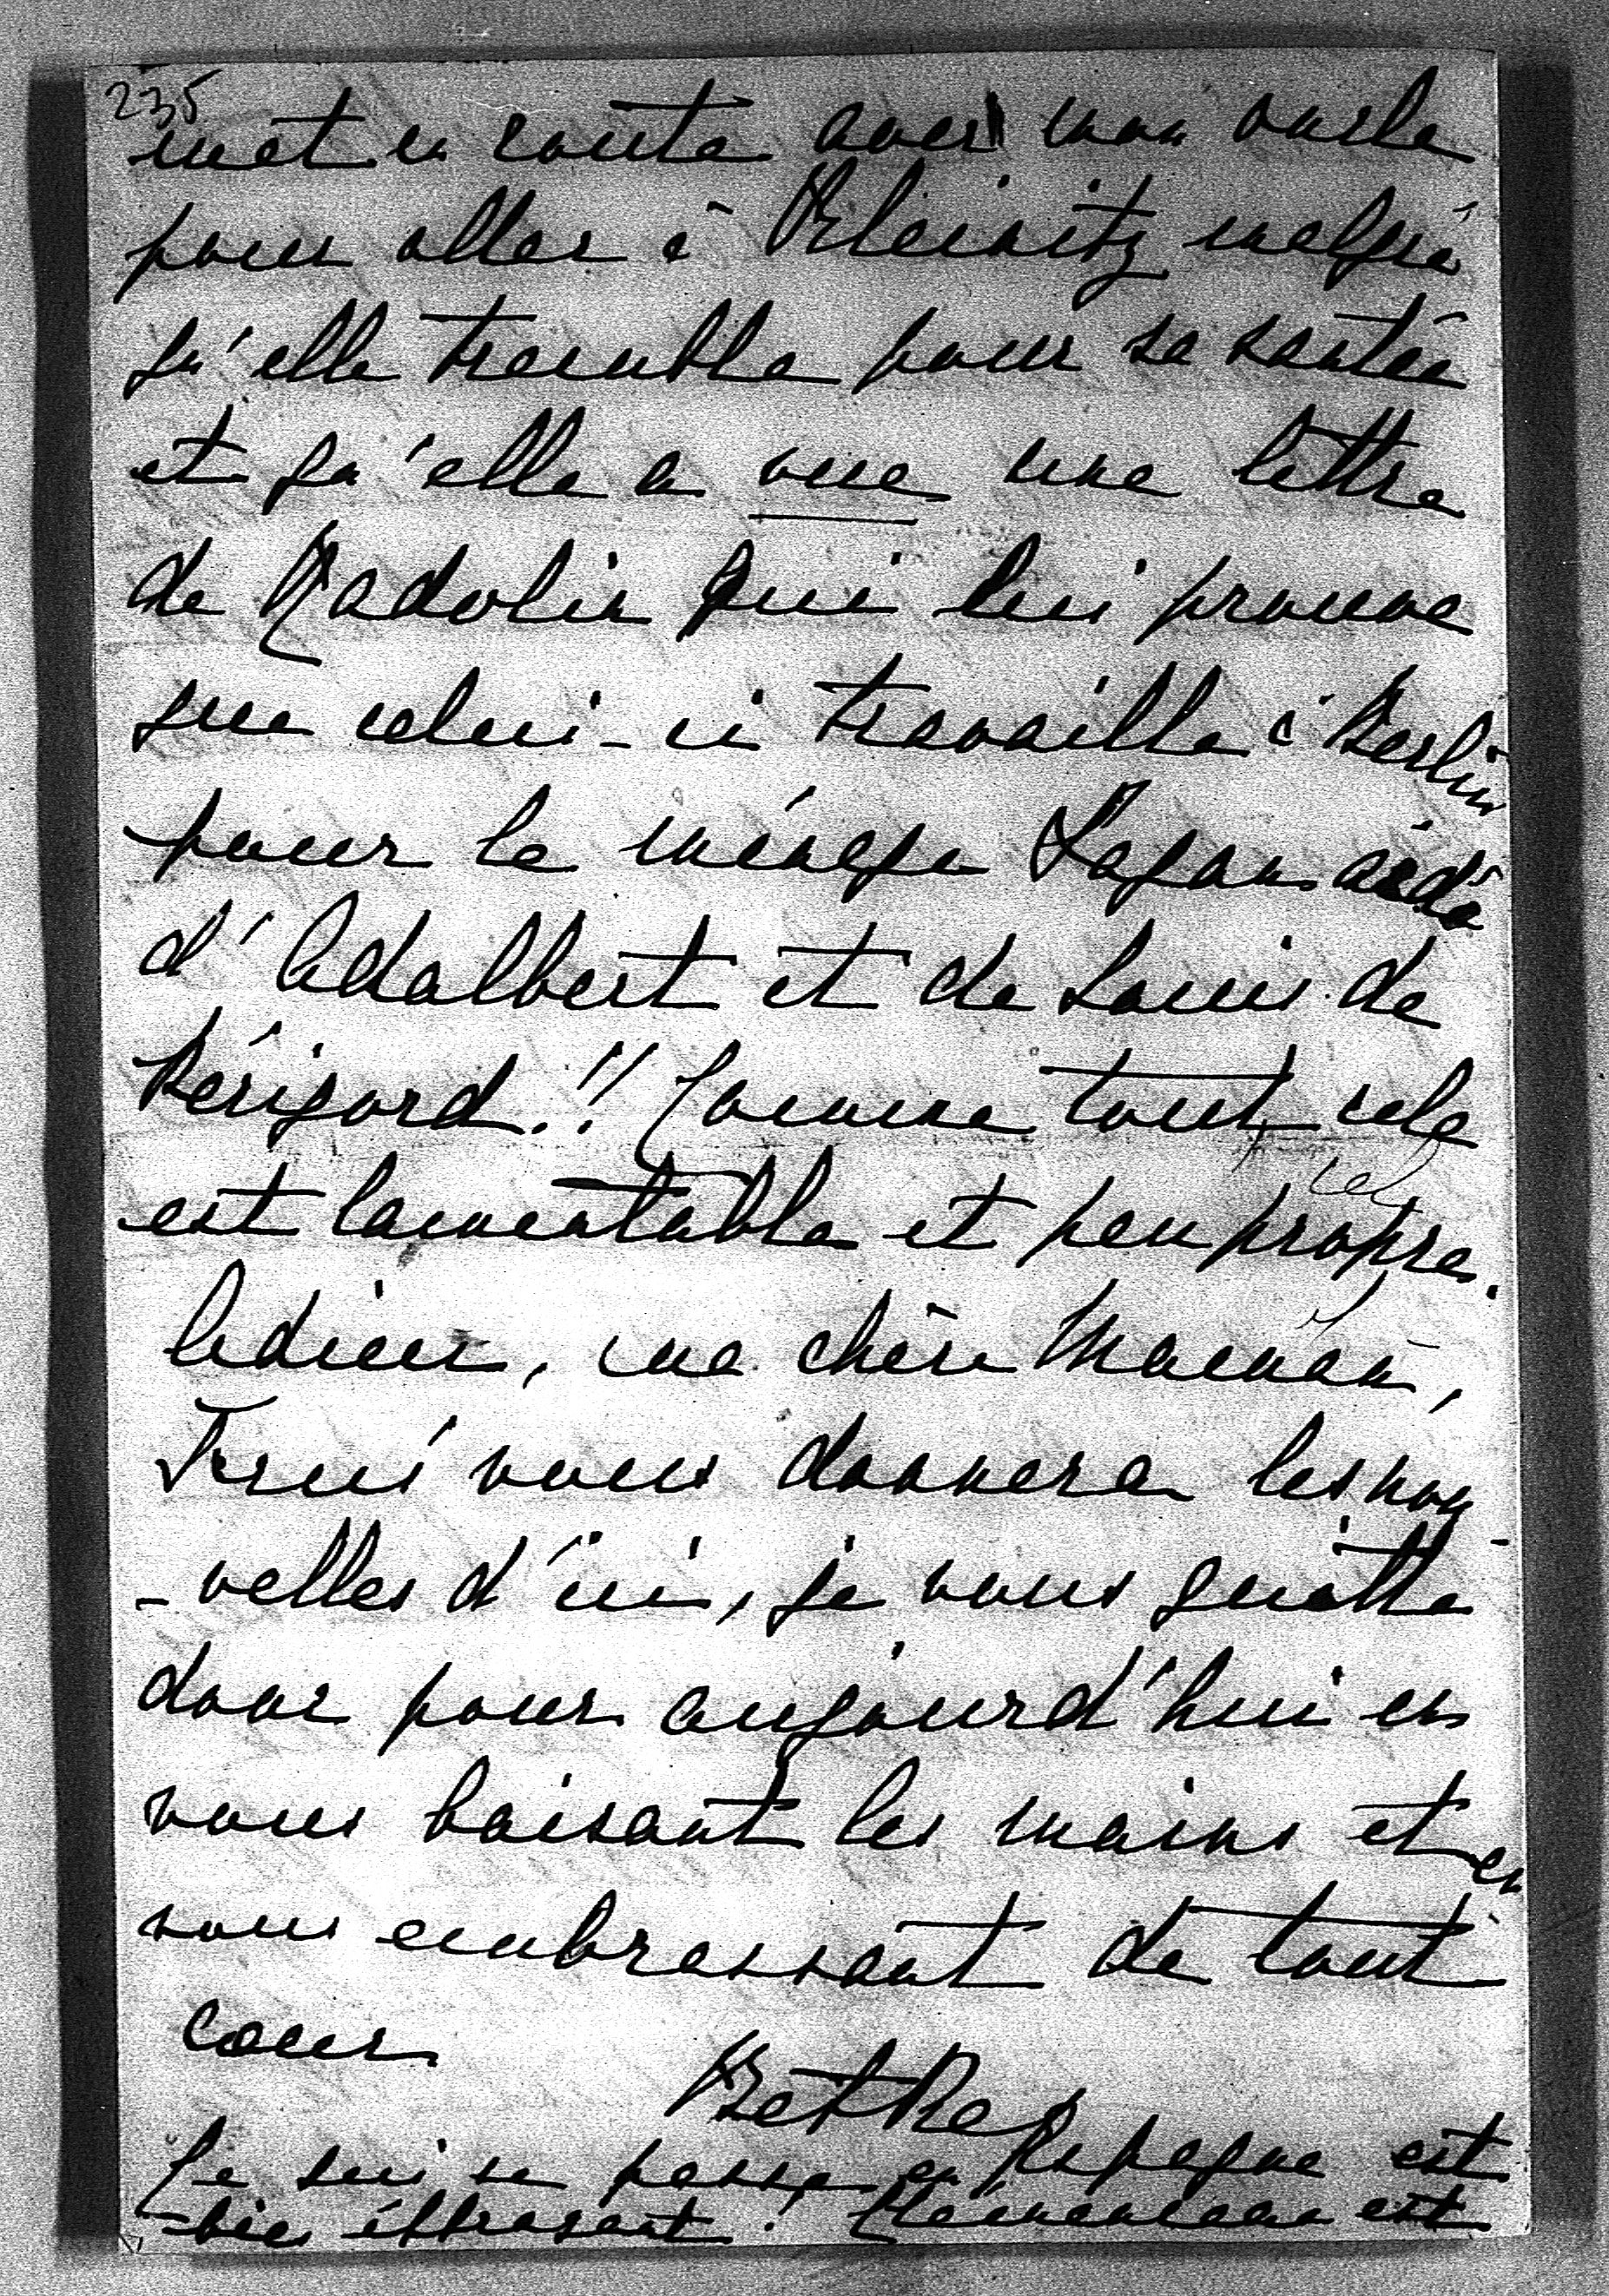 235
met en route avec mon oncle
pour aller à Kleinitz malgré
qu'elle tremble pour sa santée
et qu'elle a vue une lettre
de Radolin qui lui prouve
que celui-ci travaille à Berlin
pour le ménage Sagan aidé
d'Adalbert et de Louis de
Périgord!! Comme tout cela
est lamentable et peu propre.
Adieu, ma chère Maman,
Fruzi vous donnera les nou-
-velles d'ici, je vous quitte
donc pour aujourd'hui en
vous baisant les mains et en
vous embrassant de tout
cœur
Betka
Ce qui se passe en Espagne est
bien éffrayant! Clémenceau est